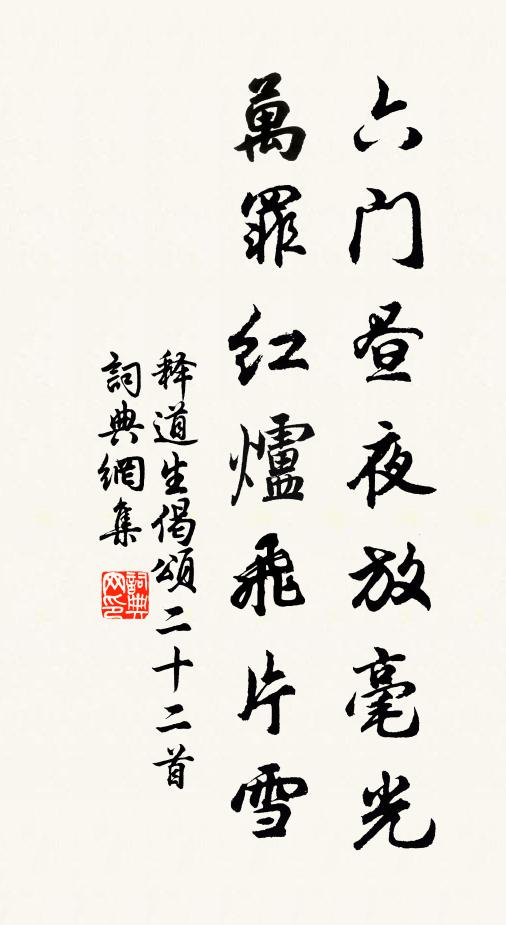 六门昼夜放毫光
萬罪红爐飛片雪
释道生偈頌二十二首
詞典網集
詞典网印